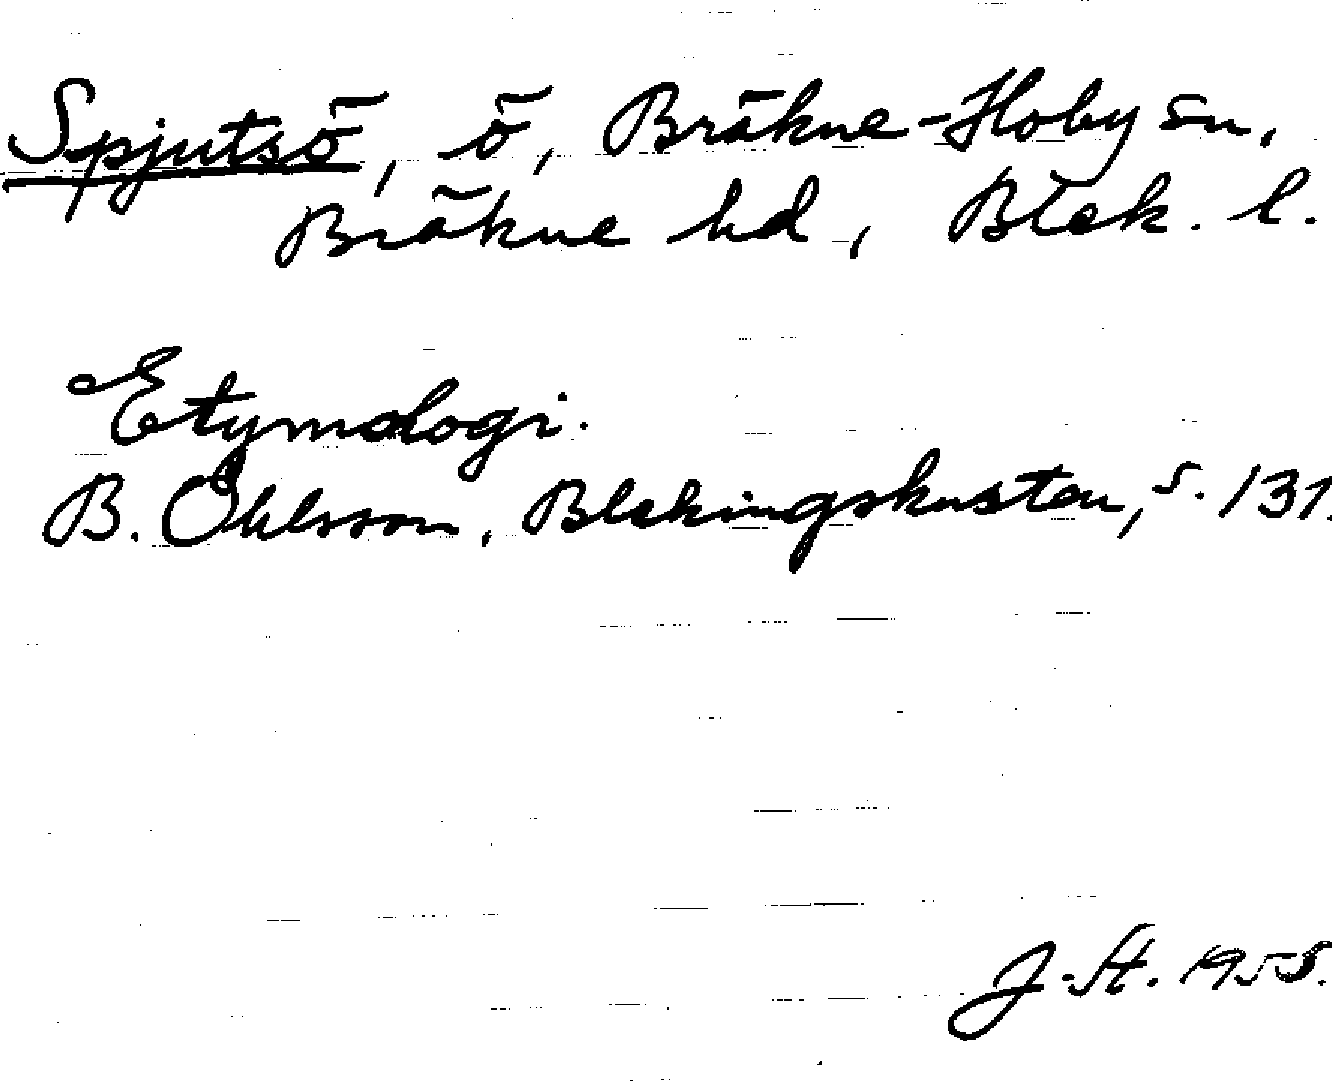 Spjutsö, ö, Bräkne-Hoby sn,
Bräkne hd, Blek. l.
Etymologi.
B. Öhlsson, Blekingskusten, s. 131.
J. St. 1955.